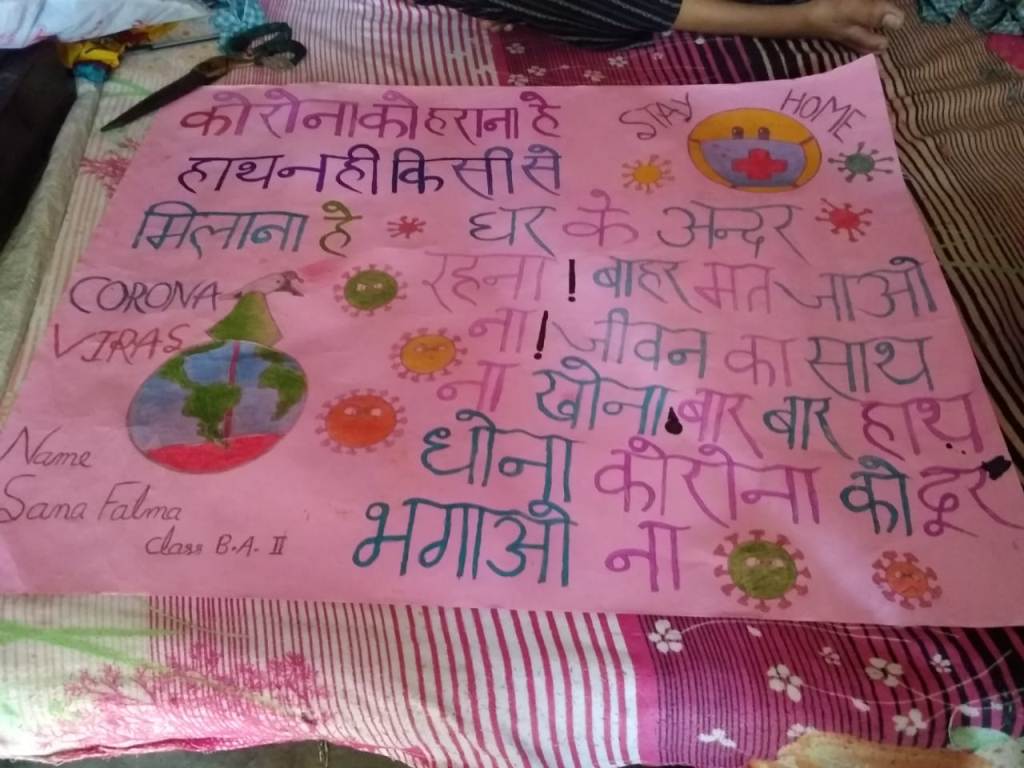 कोरोना को हराना है
STAY HOME
हाथ नही किसी से
मिलाना है
घर के अन्दर
रहना ! बाहर मत जाओ
ना ! जीवन का साथ
ना खोना बार बार हाथ
धोना कोरोना को दूर
भगाओ ना
CORONA
VIRAS
Name
Sana Falma
Class B.A. II